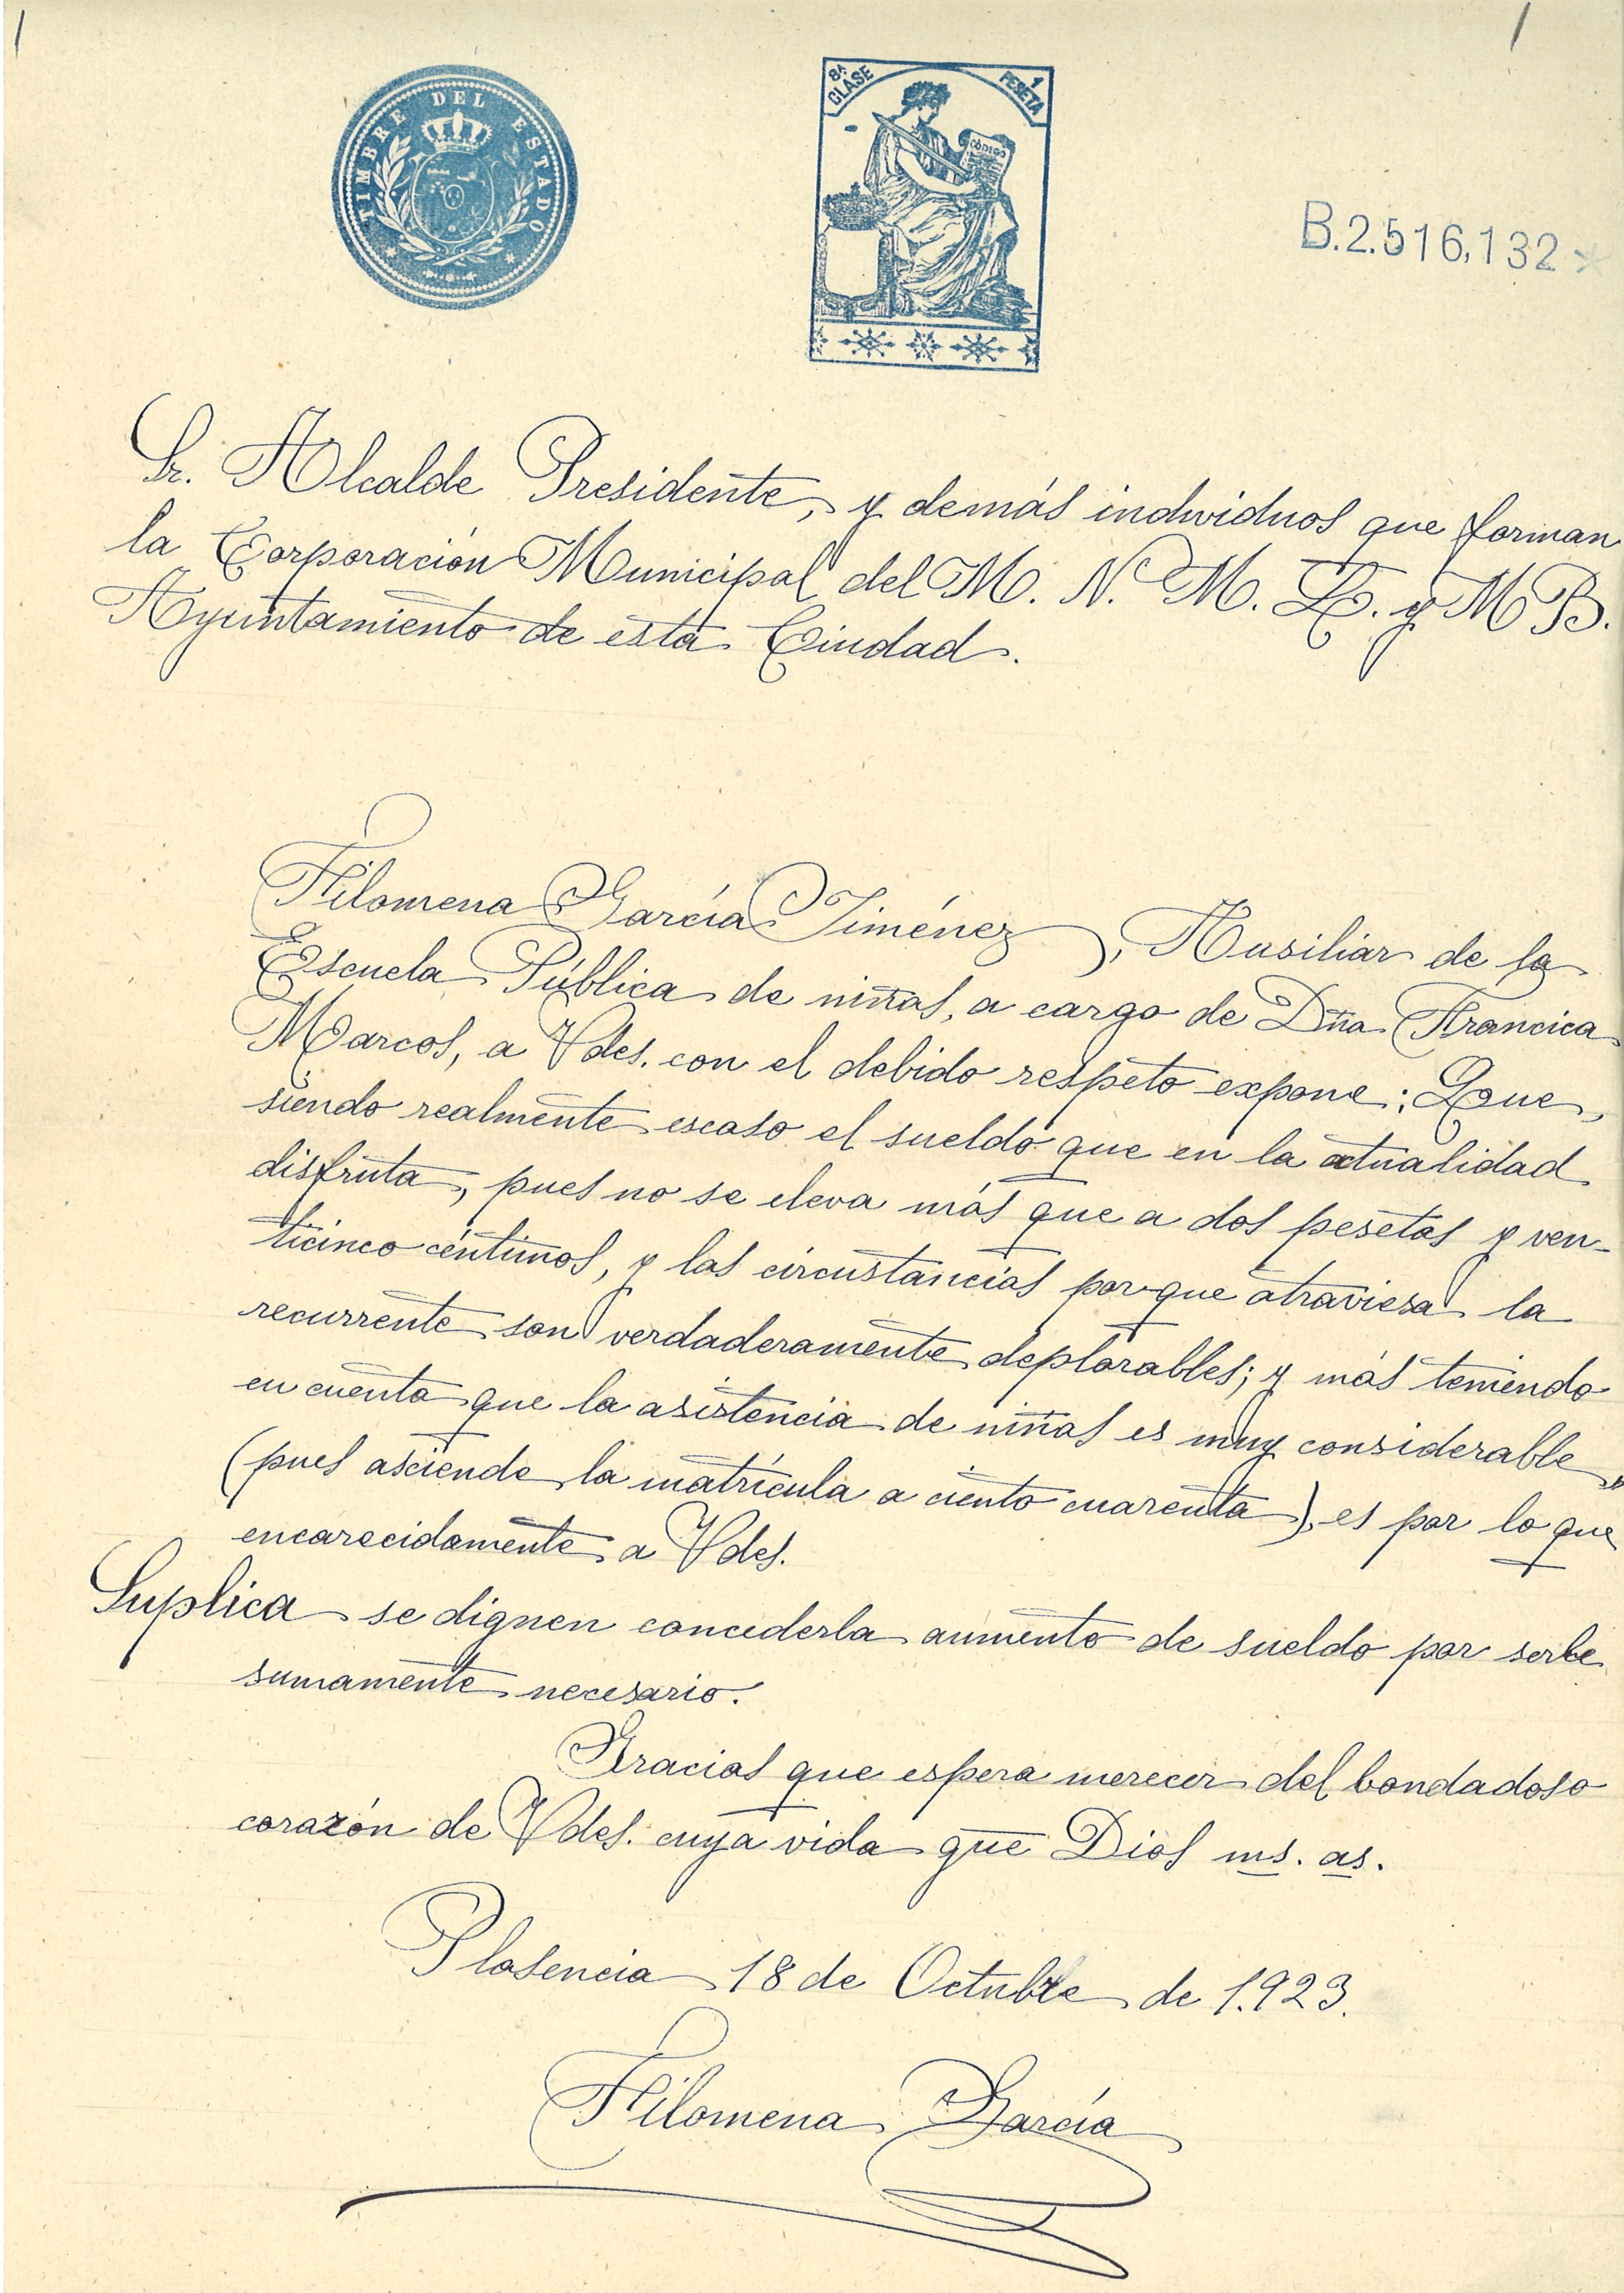 TIMBRE DEL ESTADO
8ª CLASE
1 PESETA
CÓDIGO
B.2.516,132
Sr. Alcalde Presidente, y demás individuos que forman
la Corporación Municipal del M. N. M. L. y M B.
Ayuntamiento de esta Ciudad.
Filomena García Jiménez, Ausiliar de la
Escuela Pública de niñas, a cargo de Dña Francica
Marcos, a Vdes. con el debido respeto expone: Que,
siendo realmente escaso el sueldo que en la atualidad
disfruta, pues no se eleva más que a dos pesetas y ven-
ticinco céntimos, y las circustancias porque atraviesa la
recurrente son verdaderamente deplorables; y más teniendo
en cuenta que la asistencia de niñas es muy considerable
(pues asciende la matrícula a ciento cuarenta), es por lo que
encarecidamente a Vdes.
Suplica se dignen concederla aumento de sueldo por serle
sumamente necesario.
Gracias que espera merecer del bondadoso
corazón de Vdes. cuya vida gue Dios ms. as.
Plasencia 18 de Octubre de 1.923.
Filomena García